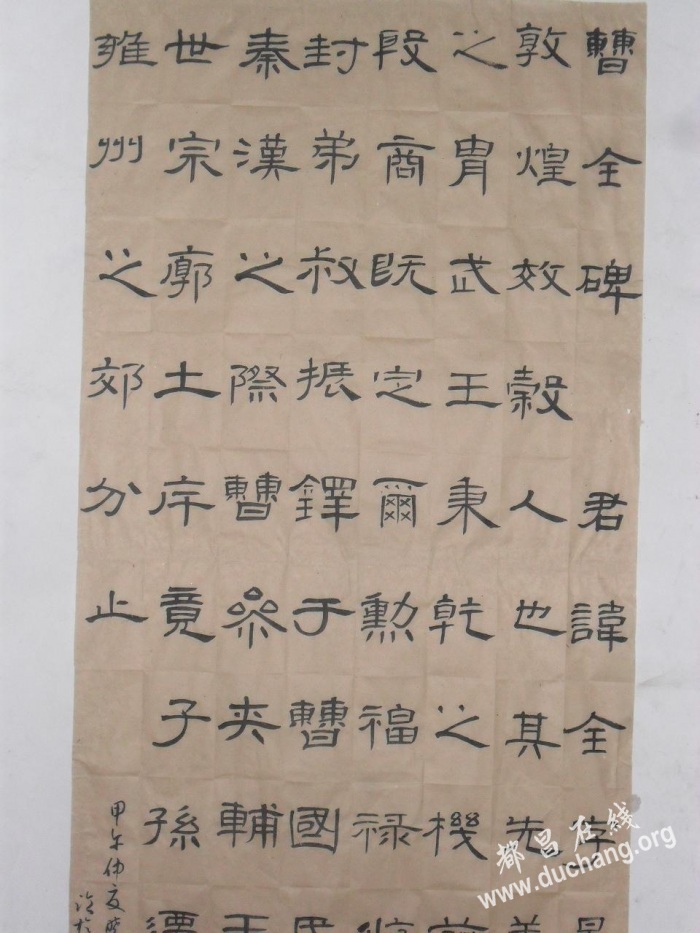 曹全碑 君諱全字景
敦煌效穀人也其先蓋
之胄武王秉乾之機
殷商既定爾勳福禄攸
封弟叔振鐸于曹國
秦漢之際曹參夾輔王
世宗廓土斥竟子孫遷
雍州之郊分止
甲午仲夏
都昌在线
www.duchang.org